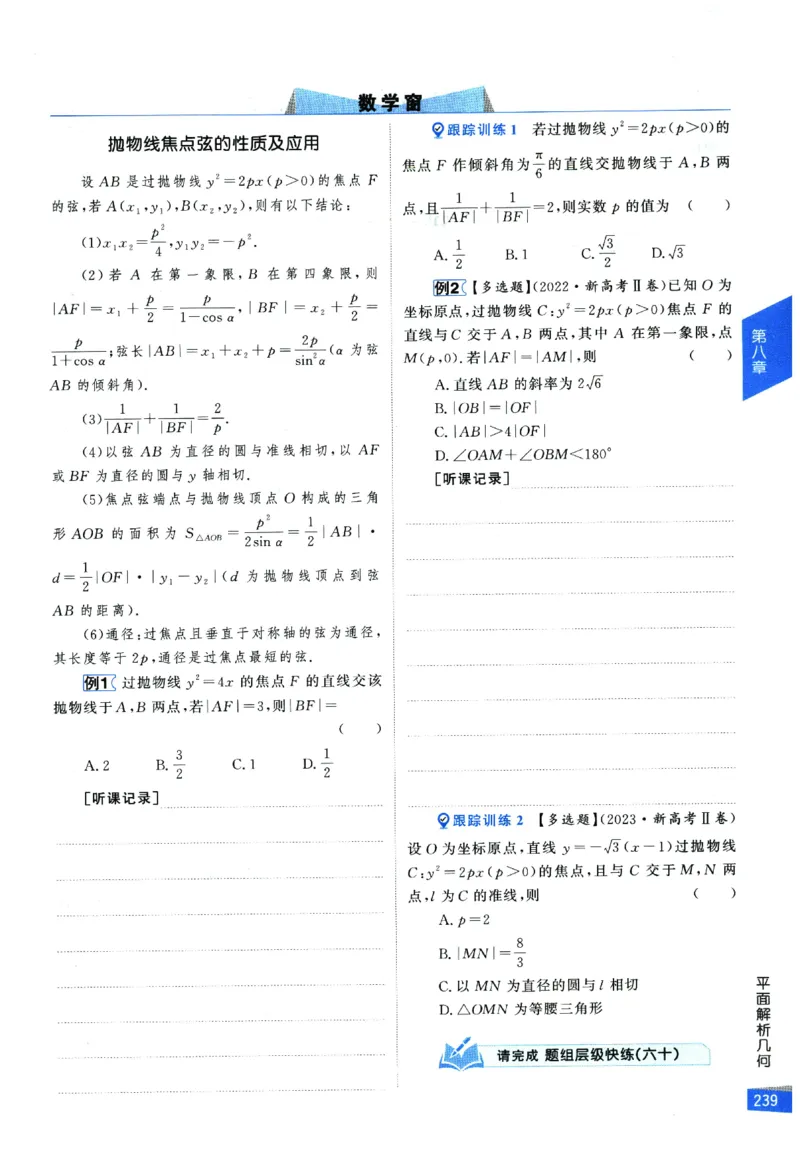 数学窗
抛物线焦点弦的性质及应用
设 AB 是过抛物线 y²=2px(p>0)的焦点 F
的弦,若 A(x₁,y₁),B(x₂,y₂),则有以下结论:
(1)x₁x₂=p²/4,y₁y₂=-p².
(2)若 A 在第一象限,B 在第四象限,则
|AF|=x₁+p/2=p/(1-cos α),|BF|=x₂+p/2=
p/(1+cos α);弦长|AB|=x₁+x₂+p=2p/sin²α(α 为弦
AB 的倾斜角).
(3)1/|AF|+1/|BF|=2/p.
(4)以弦 AB 为直径的圆与准线相切,以 AF
或 BF 为直径的圆与 y 轴相切.
(5)焦点弦端点与抛物线顶点 O 构成的三角
形 AOB 的面积为 S△AOB=p²/(2sin α)=1/2|AB|·
d=1/2|OF|·|y₁-y₂|(d 为抛物线顶点到弦
AB 的距离).
(6)通径:过焦点且垂直于对称轴的弦为通径,
其长度等于 2p,通径是过焦点最短的弦.
例1 过抛物线 y²=4x 的焦点 F 的直线交该
抛物线于A,B 两点,若|AF|=3,则|BF|=
( )
A.2 B.3/2 C.1 D.1/2
[听课记录]
跟踪训练 1 若过抛物线 y²=2px(p>0)的
焦点 F 作倾斜角为π/6的直线交抛物线于 A,B 两
点,且1/|AF|+1/|BF|=2,则实数 p 的值为 ( )
A.1/2 B.1 C.√3/2 D.√3
例2 【多选题】(2022·新高考Ⅱ卷)已知 O 为
坐标原点,过抛物线 C:y²=2px(p>0)焦点 F 的
直线与 C 交于 A,B 两点,其中 A 在第一象限,点
M(p,0).若|AF|=|AM|,则 ( )
A.直线 AB 的斜率为 2√6
B.|OB|=|OF|
C.|AB|>4|OF|
D.∠OAM+∠OBM<180°
[听课记录]
跟踪训练 2 【多选题】(2023·新高考Ⅱ卷)
设 O 为坐标原点,直线 y=-√3(x-1)过抛物线
C:y²=2px(p>0)的焦点,且与 C 交于 M,N 两
点,l 为C 的准线,则 ( )
A.p=2
B.|MN|=8/3
C.以 MN 为直径的圆与 l 相切
D.△OMN 为等腰三角形
请完成 题组层级快练(六十)
第八章
平面解析几何
239